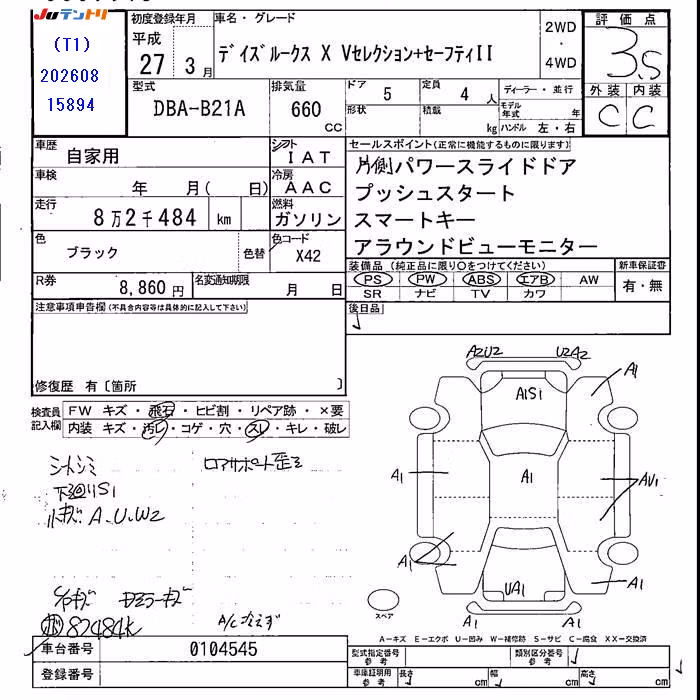 JUテントリ
(T1)
202608
15894
初度登録年月 車名・グレード
平成
27 3月
デイズルークス X Vセレクション+セーフティII
2WD
・
4WD
評価点
3.5
外装 内装
C C
型式 排気量 ドア 定員 ディーラー・並行
DBA-B21A 660 cc
5 4 人
形状 積載 kg
モデル年式 年
ハンドル 左・右
車歴 自家用 シフト IAT
車検 年 月( 日) 冷房 AAC
走行 8万2千484 km 燃料 ガソリン
色 ブラック 色替 色コード X42
R券 8,860円 名変通知期限 月 日
セールスポイント(正常に機能するものに限ります)
片側パワースライドドア
プッシュスタート
スマートキー
アラウンドビューモニター
装備品(純正品に限り○をつけてください) 新車保証書
PS PW ABS エアB AW 有・無
SR ナビ TV カワ
後日品
注意事項申告欄(不具合内容等は具体的に記入して下さい)
修復歴 有〔箇所 〕
検査員記入欄
FW キズ・飛石・ヒビ割・リペア跡・×要
内装 キズ・汚レ・コゲ・穴・スレ・キレ・破レ
シートシミ ロアサポート歪ミ
下廻りS1
小キズ A.U.W2
82484K
A/C冷えず
A2U2 U2A2
A1S1
A1
A1
A1
AU1
A1
UA1
A1
A1 A1
スペア
A-キズ E-エクボ U-凹み W-補修跡 S-サビ C-腐食 XX-交換済
車台番号 0104545
登録番号
型式指定番号 参考 類別区分番号 参考
車庫証明用 参考 長さ cm 幅 cm 高さ cm